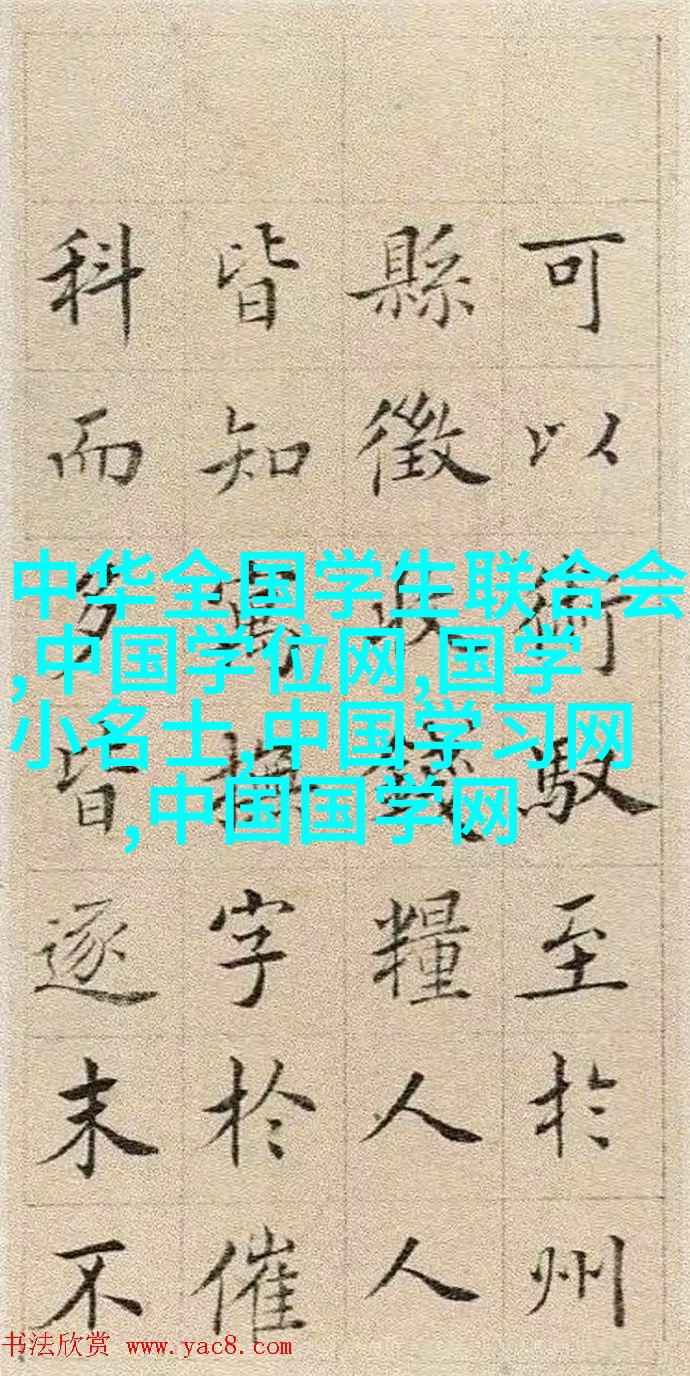 可以術馭至於州
縣徵收錢糧人人
皆知寓撫字於催
科而多皆逐末不
中华全国学生联合会
,中国学位网,国学
小名士,中国学习网
,中国国学网
书法欣赏 www.yac8.com